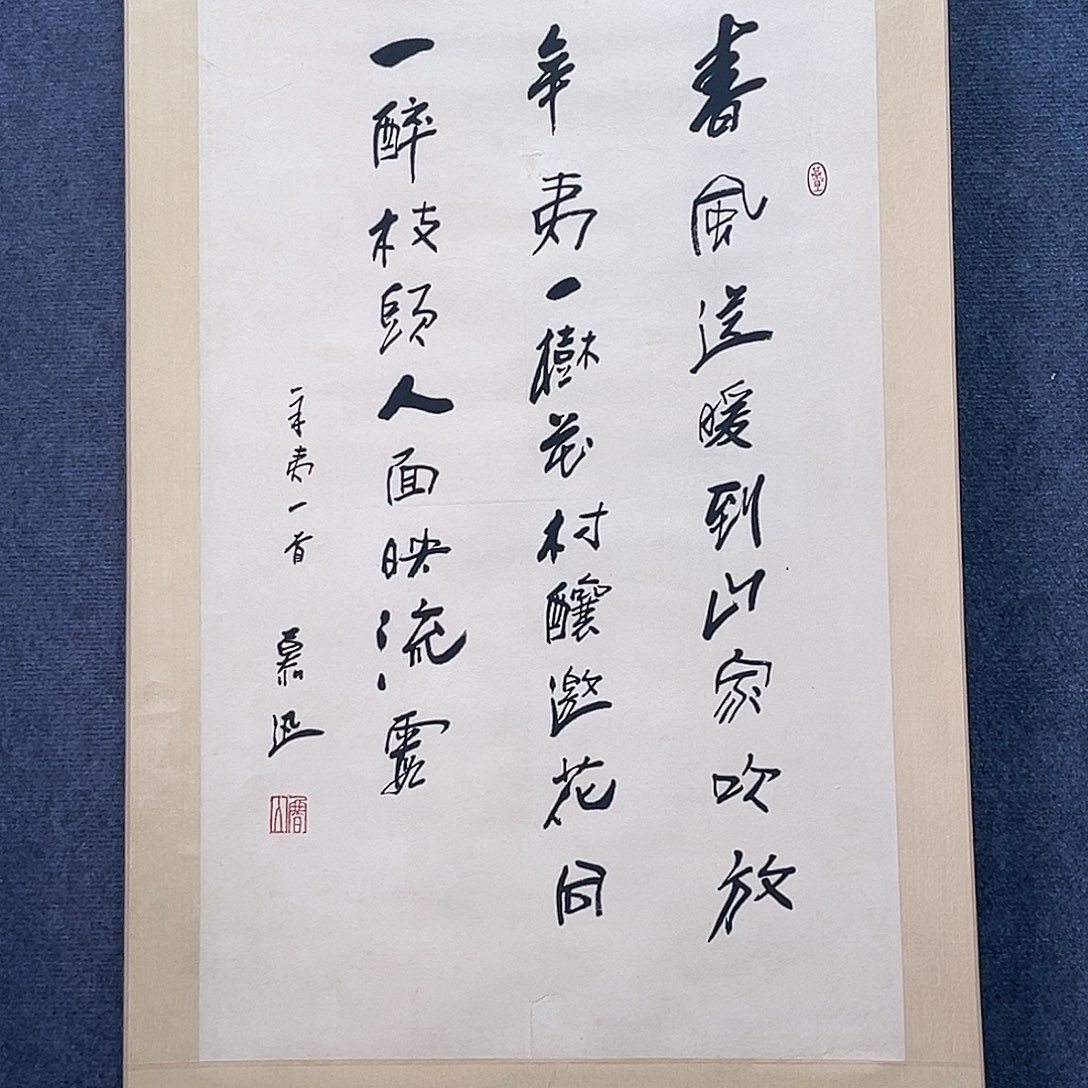 春風送暖到山家吹放
辛夷一樹花村釀邀花同
一醉枝頭人面映流霞
辛夷一首 慕迅